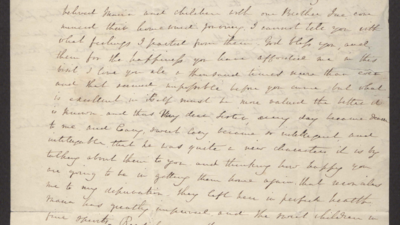 beloved Mama and children with our Brother
minced their homeward journey I cannot tell you with
what feelings I parted from them God bless you and
them for the happiness you have afforded me in this
visit I love you all a thousand times more than ever
and that seemed impossible before you came, but what
is excellent in itself must be more valued the better it
is known and thus, My dear Sister every day became
to me and sweet became so intelligent and
that he was quite a new character, it is by
talking about them to you and thinking how happy you
are going to be in getting them home again that reconciles
me to my deprivation they left here in perfect health
Mama was greatly improved and the sweet children in
fine spirits